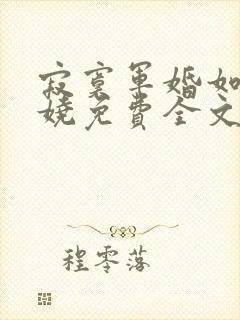 寂寞军婚如
娆免费全文
程零落